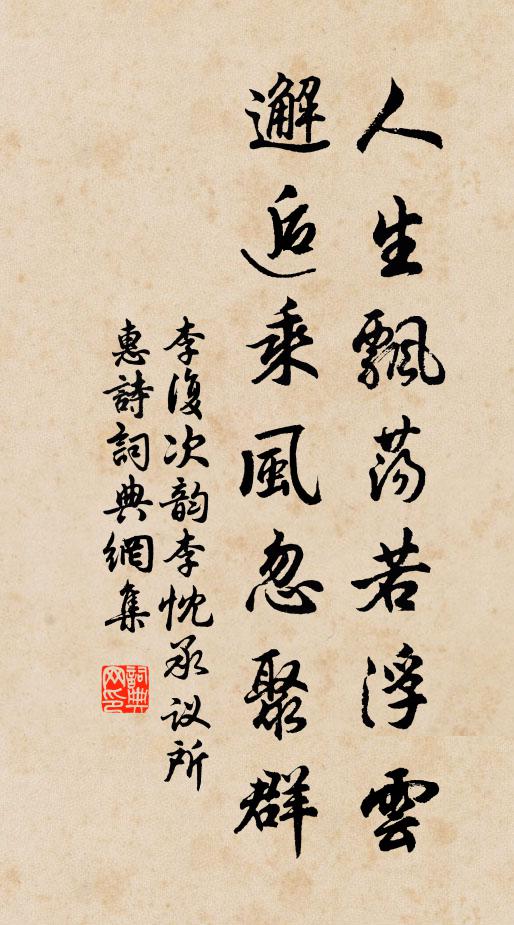 人生飄蕩若浮雲
邂逅乘風忽聚群
李復次韵李忱承议所
惠詩詞典網集
詞典
网印